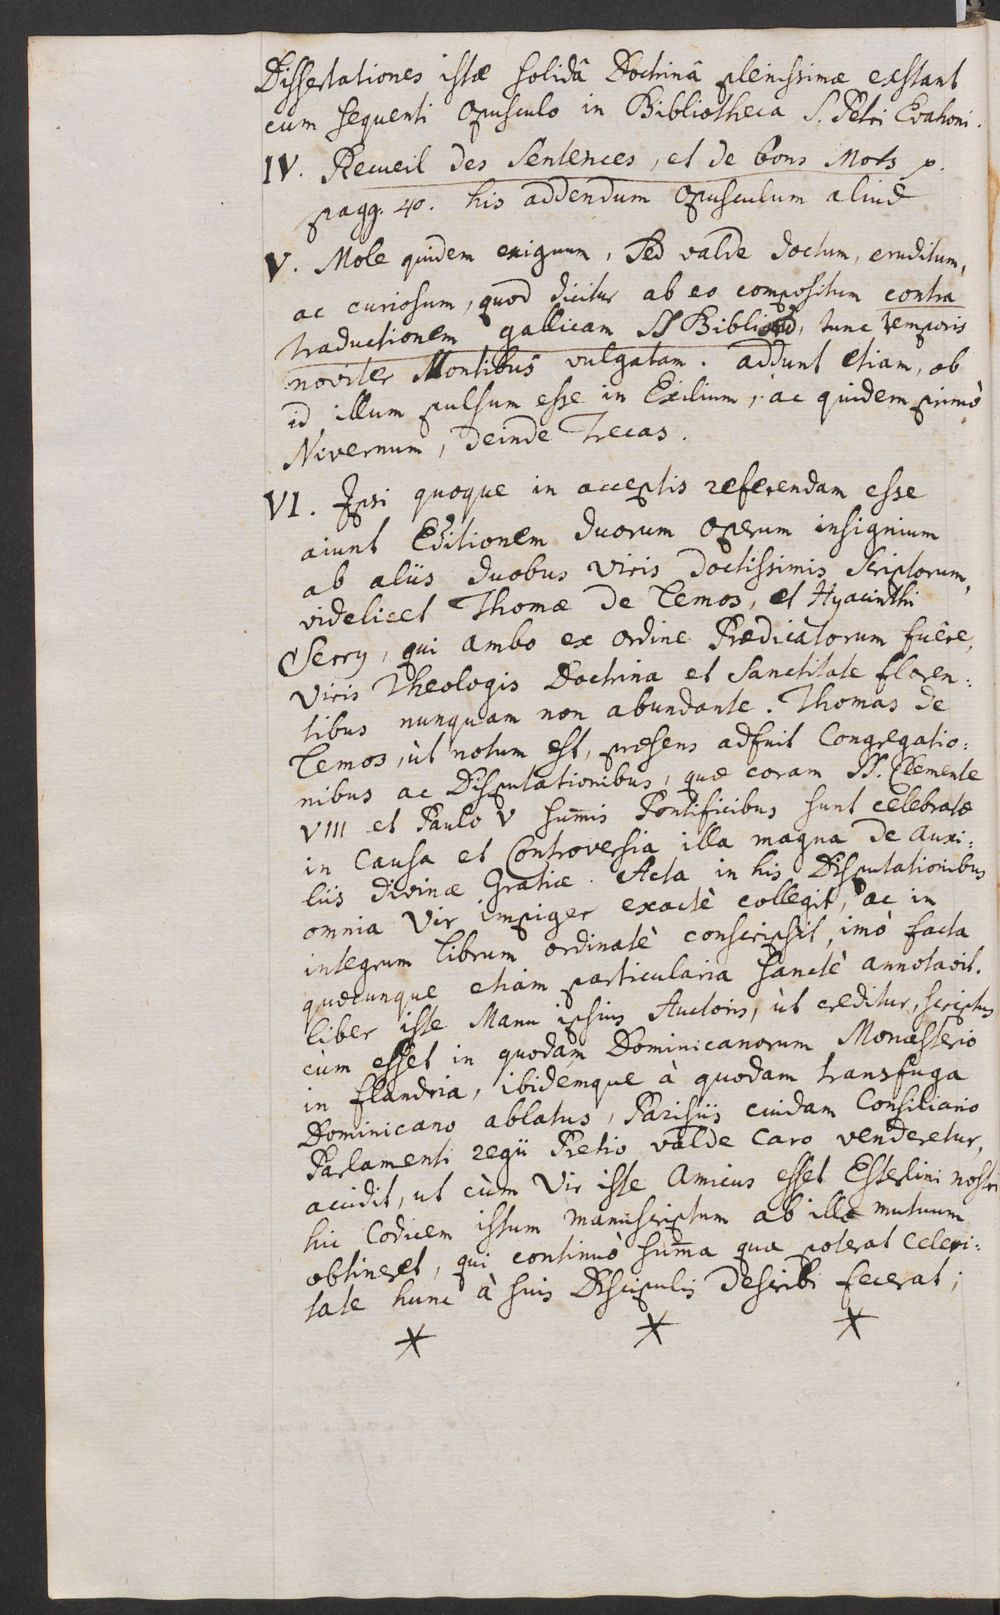 Dissertationes istæ solidâ Doctrinâ plenissimæ exstant
cum sequenti Opusculo in Bibliotheca S. Petri Evahoni.
IV. Recueil des Sentences, et de bons Mots p.
pagg. 40. his addendum Opusculum aliud
V. Mole quidem exiguum, sed valde doctum, eruditum,
ac curiosum, quod dicitur ab eo compositum contra
traductionem gallicam SS Bibliorum, tunc temporis
noviter Montibus vulgatam. addunt etiam, ob
id illum pulsum esse in Exilium, ac quidem primò
Nivernum, deinde Trecas.
VI. Ipsi quoque in acceptis referendam esse
aiunt Editionem duorum Operum insignium
ab aliis duobus Viris doctissimis scriptorum,
videlicet Thomæ De Lemos, et Hyacinthi
Serry, qui ambo ex ordine Prædicatorum fuêre,
Viris Theologis Doctrina et Sanctitate floren:
tibus nunquam non abundante. Thomas de
Lemos, ùt notum est, præsens adfuit Congregatio:
nibus ac Disputationibus, quæ coram SS. Clemente
VIII et Paulo V sum̄is Pontificibus sunt celebratæ
in Causa et Controversia illa magna de Auxi:
liis divinæ Gratiæ. Acta in his Disputationibus
omnia Vir impiger exactè collegit, ac in
integrum librum ordinatè conscripsit, imò facta
quæcunque etiam particularia sanctè annotavit.
liber iste Manu ipsius Auctoris, ùt creditur, scriptus
cùm esset in quodam Dominicanorum Monasterio
in flandria, ibidémque à quodam transfuga
Dominicano ablatus, Parisiis cuidam Consiliario
Parlamenti regii Pretio valde caro venderetur,
accidit, ut cùm Vir iste Amicus esset Esterlini nostri
hic Codicem istum manuscriptum ab illo mutuum
obtineret, qui continuò sum̄a qua poterat celeri:
tate hunc à suis Discipulis describi fecerat;
* * *